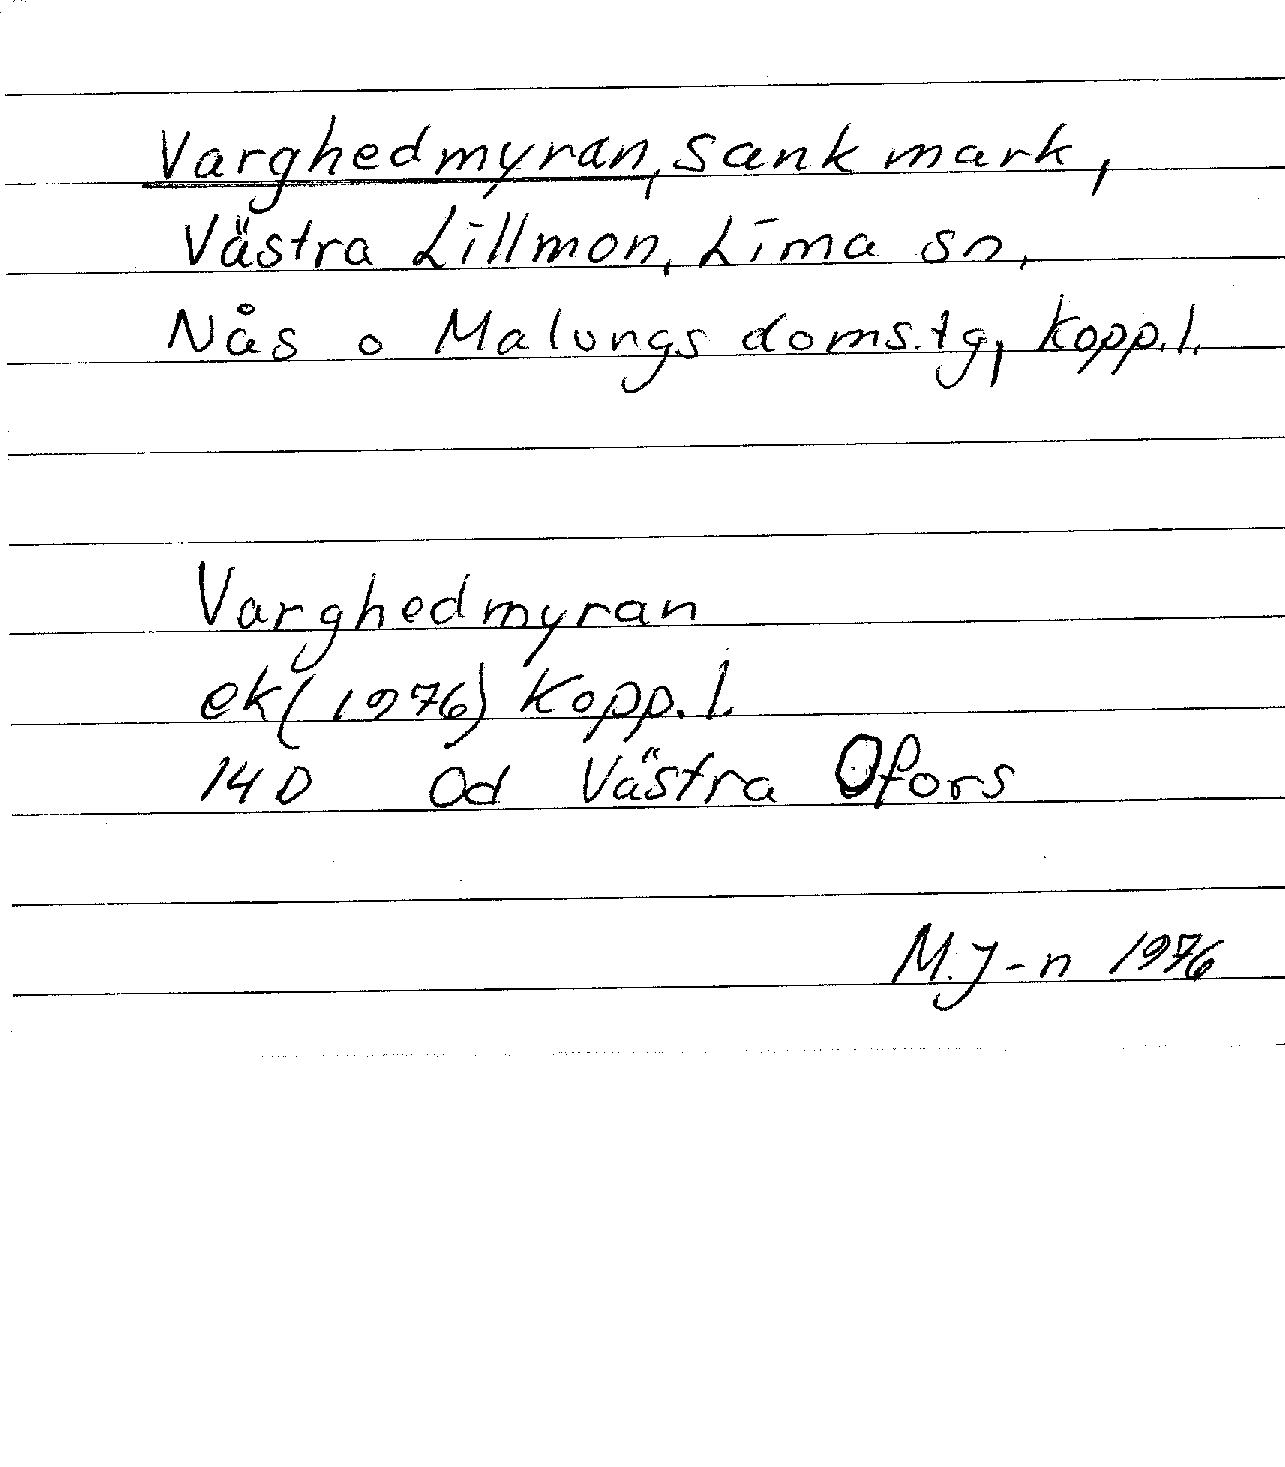 Varghedmyran, sank mark,
Västra Lillmon, Lima sn,
Nås o Malungs doms.tg, Kopp.l.
Varghedmyran
ek(1976) Kopp.l.
14D 0d Västra Ofors
M.J-n 1976